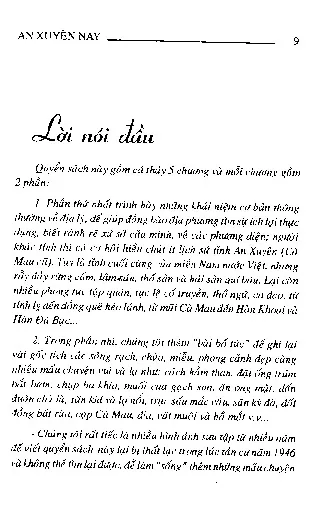 AN XUYÊN NAY 9
Lời nói đầu
Quyển sách này gồm cả thảy 5 chương và mỗi chương gồm
2 phần:
1. Phần thứ nhất trình bày những khái niệm cơ bản thông
thường về địa lý, để giúp đồng bào địa phương tìm sự ích lợi thực
dụng, biết rành rẽ xứ sở của mình, về các phương diện; người
khác tỉnh thì có cơ hội hiểu chút ít lịch sử tỉnh An Xuyên (Cà
Mau cũ). Tuy là tỉnh cuối cùng của miền Nam nước Việt, nhưng
rẫy đầy rừng cấm, lâm sản, thổ sản và hải sản quí báu. Lại còn
nhiều phong tục tập quán, tục lệ cổ truyền, thổ ngữ, ca dao, từ
tỉnh lỵ đến đồng quê hẻo lánh, từ mũi Cà Mau đến Hòn Khoai và
Hòn Đá Bạc...
2. Trong phần nhì, chúng tôi thêm "bài bổ túc" để ghi lại
vài gốc tích các sông rạch, chùa, miễu, phong cảnh đẹp cùng
nhiều mẩu chuyện vui và lạ như: cách hầm than, đặt ống trúm
bắt lươn, chụp ba khía, muối cua gạch son, ăn ong mật, dồn
đuôn chà là, săn khỉ và lọ nồi, trục sấu mắc câu, săn kỳ đà, đốt
đồng bắt rùa, cọp Cà Mau, đỉa, vắt muỗi và bồ mắt v.v...
- Chúng tôi rất tiếc là nhiều hình ảnh sưu tập từ nhiều năm
để viết quyển sách này lại bị thất lạc trong lúc tản cư năm 1946
và không thể tìm lại được, để làm "sống" thêm những mẩu chuyện